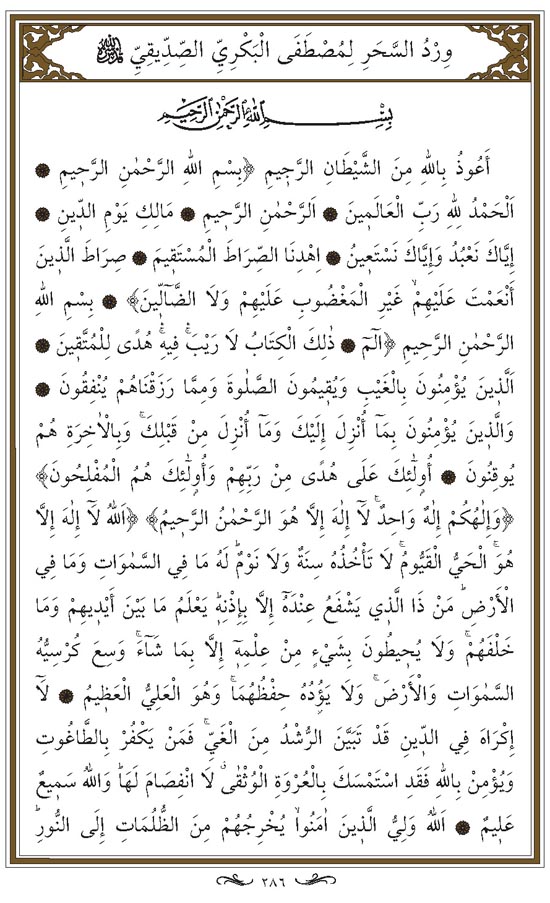 وِرْدُ السَّحَرِ لِمُصْطَفَى الْبَكْرِيِّ الصِّدِّيقِيِّ
بِسْمِ اللهِ الرَّحْمٰنِ الرَّحِيمِ
أَعُوذُ بِاللهِ مِنَ الشَّيْطَانِ الرَّجِيمِ ﴿بِسْمِ اللهِ الرَّحْمٰنِ الرَّحِيمِ ۞
اَلْحَمْدُ لِلهِ رَبِّ الْعَالَمِينَ ۞ اَلرَّحْمٰنِ الرَّحِيمِ ۞ مَالِكِ يَوْمِ الدِّينِ ۞
إِيَّاكَ نَعْبُدُ وَإِيَّاكَ نَسْتَعِينُ ۞ اِهْدِنَا الصِّرَاطَ الْمُسْتَقِيمَ ۞ صِرَاطَ الَّذِينَ
أَنْعَمْتَ عَلَيْهِمْۙ غَيْرِ الْمَغْضُوبِ عَلَيْهِمْ وَلَا الضَّآلِّينَ﴾ ۞ بِسْمِ اللهِ
الرَّحْمٰنِ الرَّحِيمِ ﴿الٓمٓ ۞ ذٰلِكَ الْكِتَابُ لَا رَيْبَۚ فِيهِۚ هُدًى لِلْمُتَّقِينَ ۞
اَلَّذِينَ يُؤْمِنُونَ بِالْغَيْبِ وَيُقِيمُونَ الصَّلٰوةَ وَمِمَّا رَزَقْنَاهُمْ يُنْفِقُونَ ۞
وَالَّذِينَ يُؤْمِنُونَ بِمَآ أُنْزِلَ إِلَيْكَ وَمَآ أُنْزِلَ مِنْ قَبْلِكَۚ وَبِالْاٰخِرَةِ هُمْ
يُوقِنُونَ ۞ أُولٰٓئِكَ عَلٰى هُدًى مِنْ رَبِّهِمْ وَأُولٰٓئِكَ هُمُ الْمُفْلِحُونَ﴾
﴿وَإِلٰهُكُمْ إِلٰهٌ وَاحِدٌۚ لَآ إِلٰهَ إِلَّا هُوَ الرَّحْمٰنُ الرَّحِيمُ﴾ ﴿اَللهُ لَآ إِلٰهَ إِلَّا
هُوَۚ الْحَيُّ الْقَيُّومُۚ لَا تَأْخُذُهُ سِنَةٌ وَلَا نَوْمٌۜ لَهُ مَا فِي السَّمٰوَاتِ وَمَا فِي
الْأَرْضِۜ مَنْ ذَا الَّذِي يَشْفَعُ عِنْدَهُٓ إِلَّا بِإِذْنِهِۜ يَعْلَمُ مَا بَيْنَ أَيْدِيهِمْ وَمَا
خَلْفَهُمْۚ وَلَا يُحِيطُونَ بِشَيْءٍ مِنْ عِلْمِهِٓ إِلَّا بِمَا شَآءَۚ وَسِعَ كُرْسِيُّهُ
السَّمٰوَاتِ وَالْأَرْضَۚ وَلَا يَؤُدُهُ حِفْظُهُمَاۚ وَهُوَ الْعَلِيُّ الْعَظِيمُ ۞ لَآ
إِكْرَاهَ فِي الدِّينِ قَدْ تَبَيَّنَ الرُّشْدُ مِنَ الْغَيِّۚ فَمَنْ يَكْفُرْ بِالطَّاغُوتِ
وَيُؤْمِنْ بِاللهِ فَقَدِ اسْتَمْسَكَ بِالْعُرْوَةِ الْوُثْقٰىۗ لَا انْفِصَامَ لَهَاۜ وَاللهُ سَمِيعٌ
عَلِيمٌ ۞ اَللهُ وَلِيُّ الَّذِينَ اٰمَنُواۙ يُخْرِجُهُمْ مِنَ الظُّلُمَاتِ إِلَى النُّورِۜ
٢٨٦